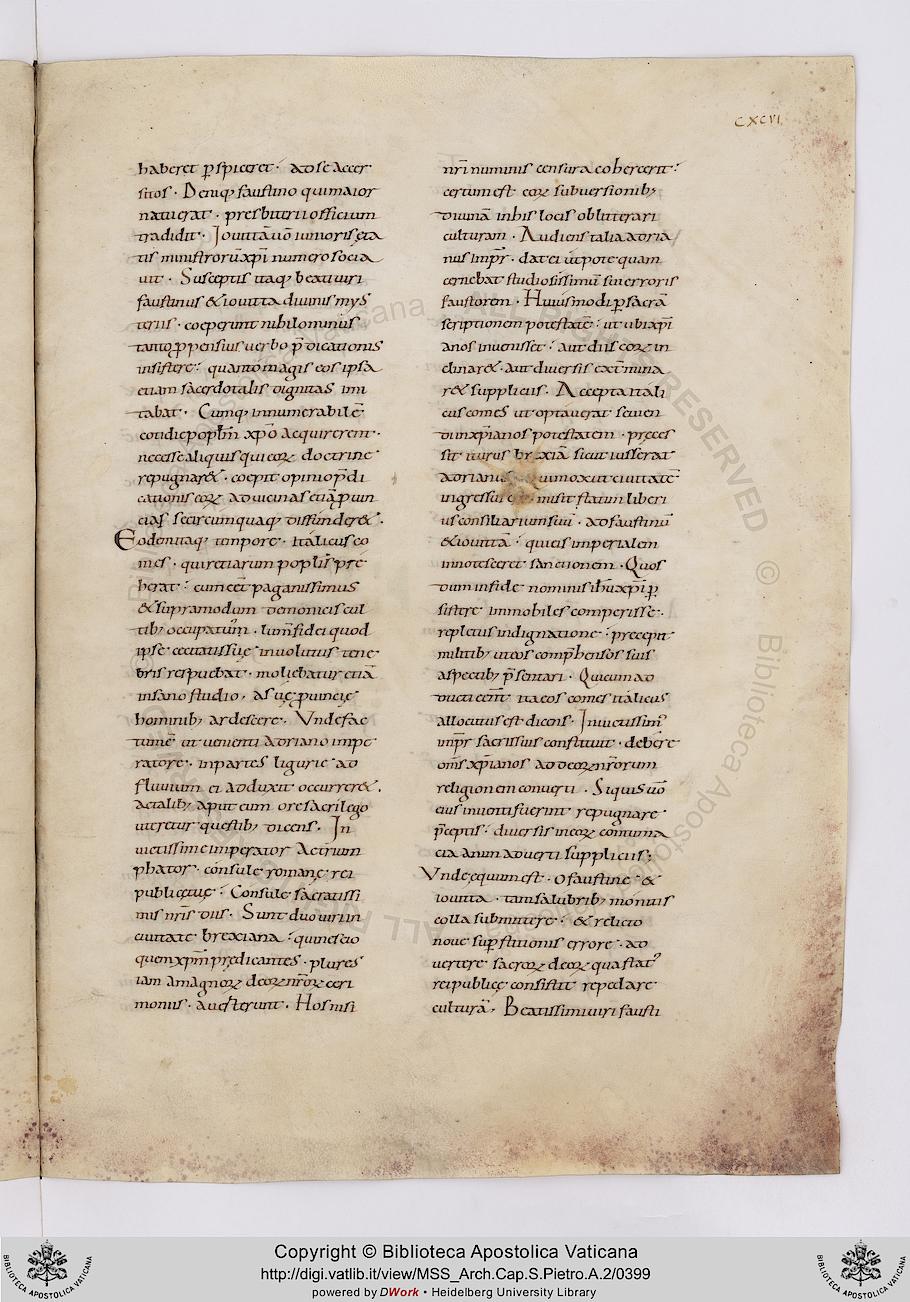 CXCVI
haberet p̱spiceret · ad se accer
sitos · Deniq; faustino qui maior
natu erat · presbiterii officium
tradidit · Iovittā uō iunioris ęta
tis ministrorū xp̄i numero socia
uit · Susceptis itaq; beati uiri
faustinus & iouitta diuinis mys
teriis · coeperunt nihilominus
tantoq; p̱pensius uerbo p̄dicationis
insistere · quanto magis eos ipsa
etiam sacerdotalis dignitas imi
tabat · Cumq; innumerabilē
cotidie popl̄m xp̄o acquirerent ·
necesse aliquis qui eoꝝ doctrine
repugnar& · coepit opinio p̄di
cationis eoꝝ ad uicinas etiā p̱uin
cias se circumquaq; diffunder& ·
Eodem itaq; tempore · Italicus co
mes · qui retiarum poplis prę
herat · cum eēt paganissimus
& supra modum demonicis cul
tib; occupatum · lum̄ fidei quod
ipse cecitatis suę inuolutus tene
bris respuebat · moliebatur etiā
insano studio, a suę p̱uincię
hominib; ardescere · Vnde fac
tum ē ut uenienti adriano impe
ratore · in partes ligurie · ad
fluuium ei adduxit occurrer& ·
ac talib; aput eum ore sacrilego
uteretur questib; dicens · In
uictissime imperator Actrium
phator · consule romanę rei
publicę tuę · Consule sacratissi
mis nr̄is diis · Sunt duo uiri in
ciuitate brexiana · qui nescio
quem xp̄m predicantes · plures
iam a magnoꝝ deoꝝ nr̄oꝝ ceri
moniis · auerterunt · Hos nisi
nr̄i numinis censura cohercerit ·
certum est eoꝝ subuersionib;
diuinā in his locis oblitterari
culturam · Audiens talia adria
nus imp̄r · dat ei ut pote quam
cernebat studiosissimū sui erroris
faustorem · Huiusmodi p̱ sacrā
scriptionem potestatē · ut ubi xp̄i
anos inuenisset · aut diis eoꝝ in
clinar& · aut diuersis ext̄mina
r& suppliciis · Accepta itali
cus comes ut optauerat seuien
di in xp̄ianos potestatem · preces
sit iturus brexiā sicut iusserat
adrianus qui mox ut ciuitatē
ingressus misit statim liberi
us consiliarium suū · ad faustinū
& iouittā · qui eis imperialem
innotesceret sanctionem · Quos
dum in fide nominis ih̄u xp̄i p̱
sistere immobiles comperisse ·
repletus indignatione · precepit
militib; ut eos comp̱hensos suis
aspectib; p̄sentari · Qui cum ad
ducti eēnt ita eos comes italicus
allocutus est dicens · Inuictissim᾿
imp̄r sacris suis constituit · debēre
om̄s xp̄ianos ad deoꝝ nr̄orum
religionem conuerti · Siquis uō
eius inuenti fuerint repugnare
p̄ceptis · diuersis in eoꝝ contuma
cia anim aduerti suppliciis ;
Vnde ęquum est · o faustine · &
iouitta · tam salubrib; monitis
colla submittere · & relicto
noue sup̱stitionis errore · ad
uertere sacroꝝ deoꝝ qua stat᾿
rei publicę consistit repedare
culturā, Beatissimi uiri fausti
Copyright © Biblioteca Apostolica Vaticana
http://digi.vatlib.it/view/MSS_Arch.Cap.S.Pietro.A.2/0399
powered by DWork • Heidelberg University Library